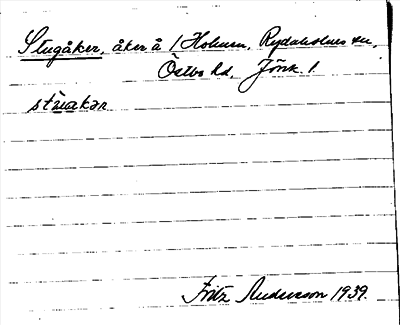 Stugåker, åker å 1 Hohult, Rydaholms sn,
Östbo hd, Jönk. l.
stu̇akar
Fritz Andersson 1939.